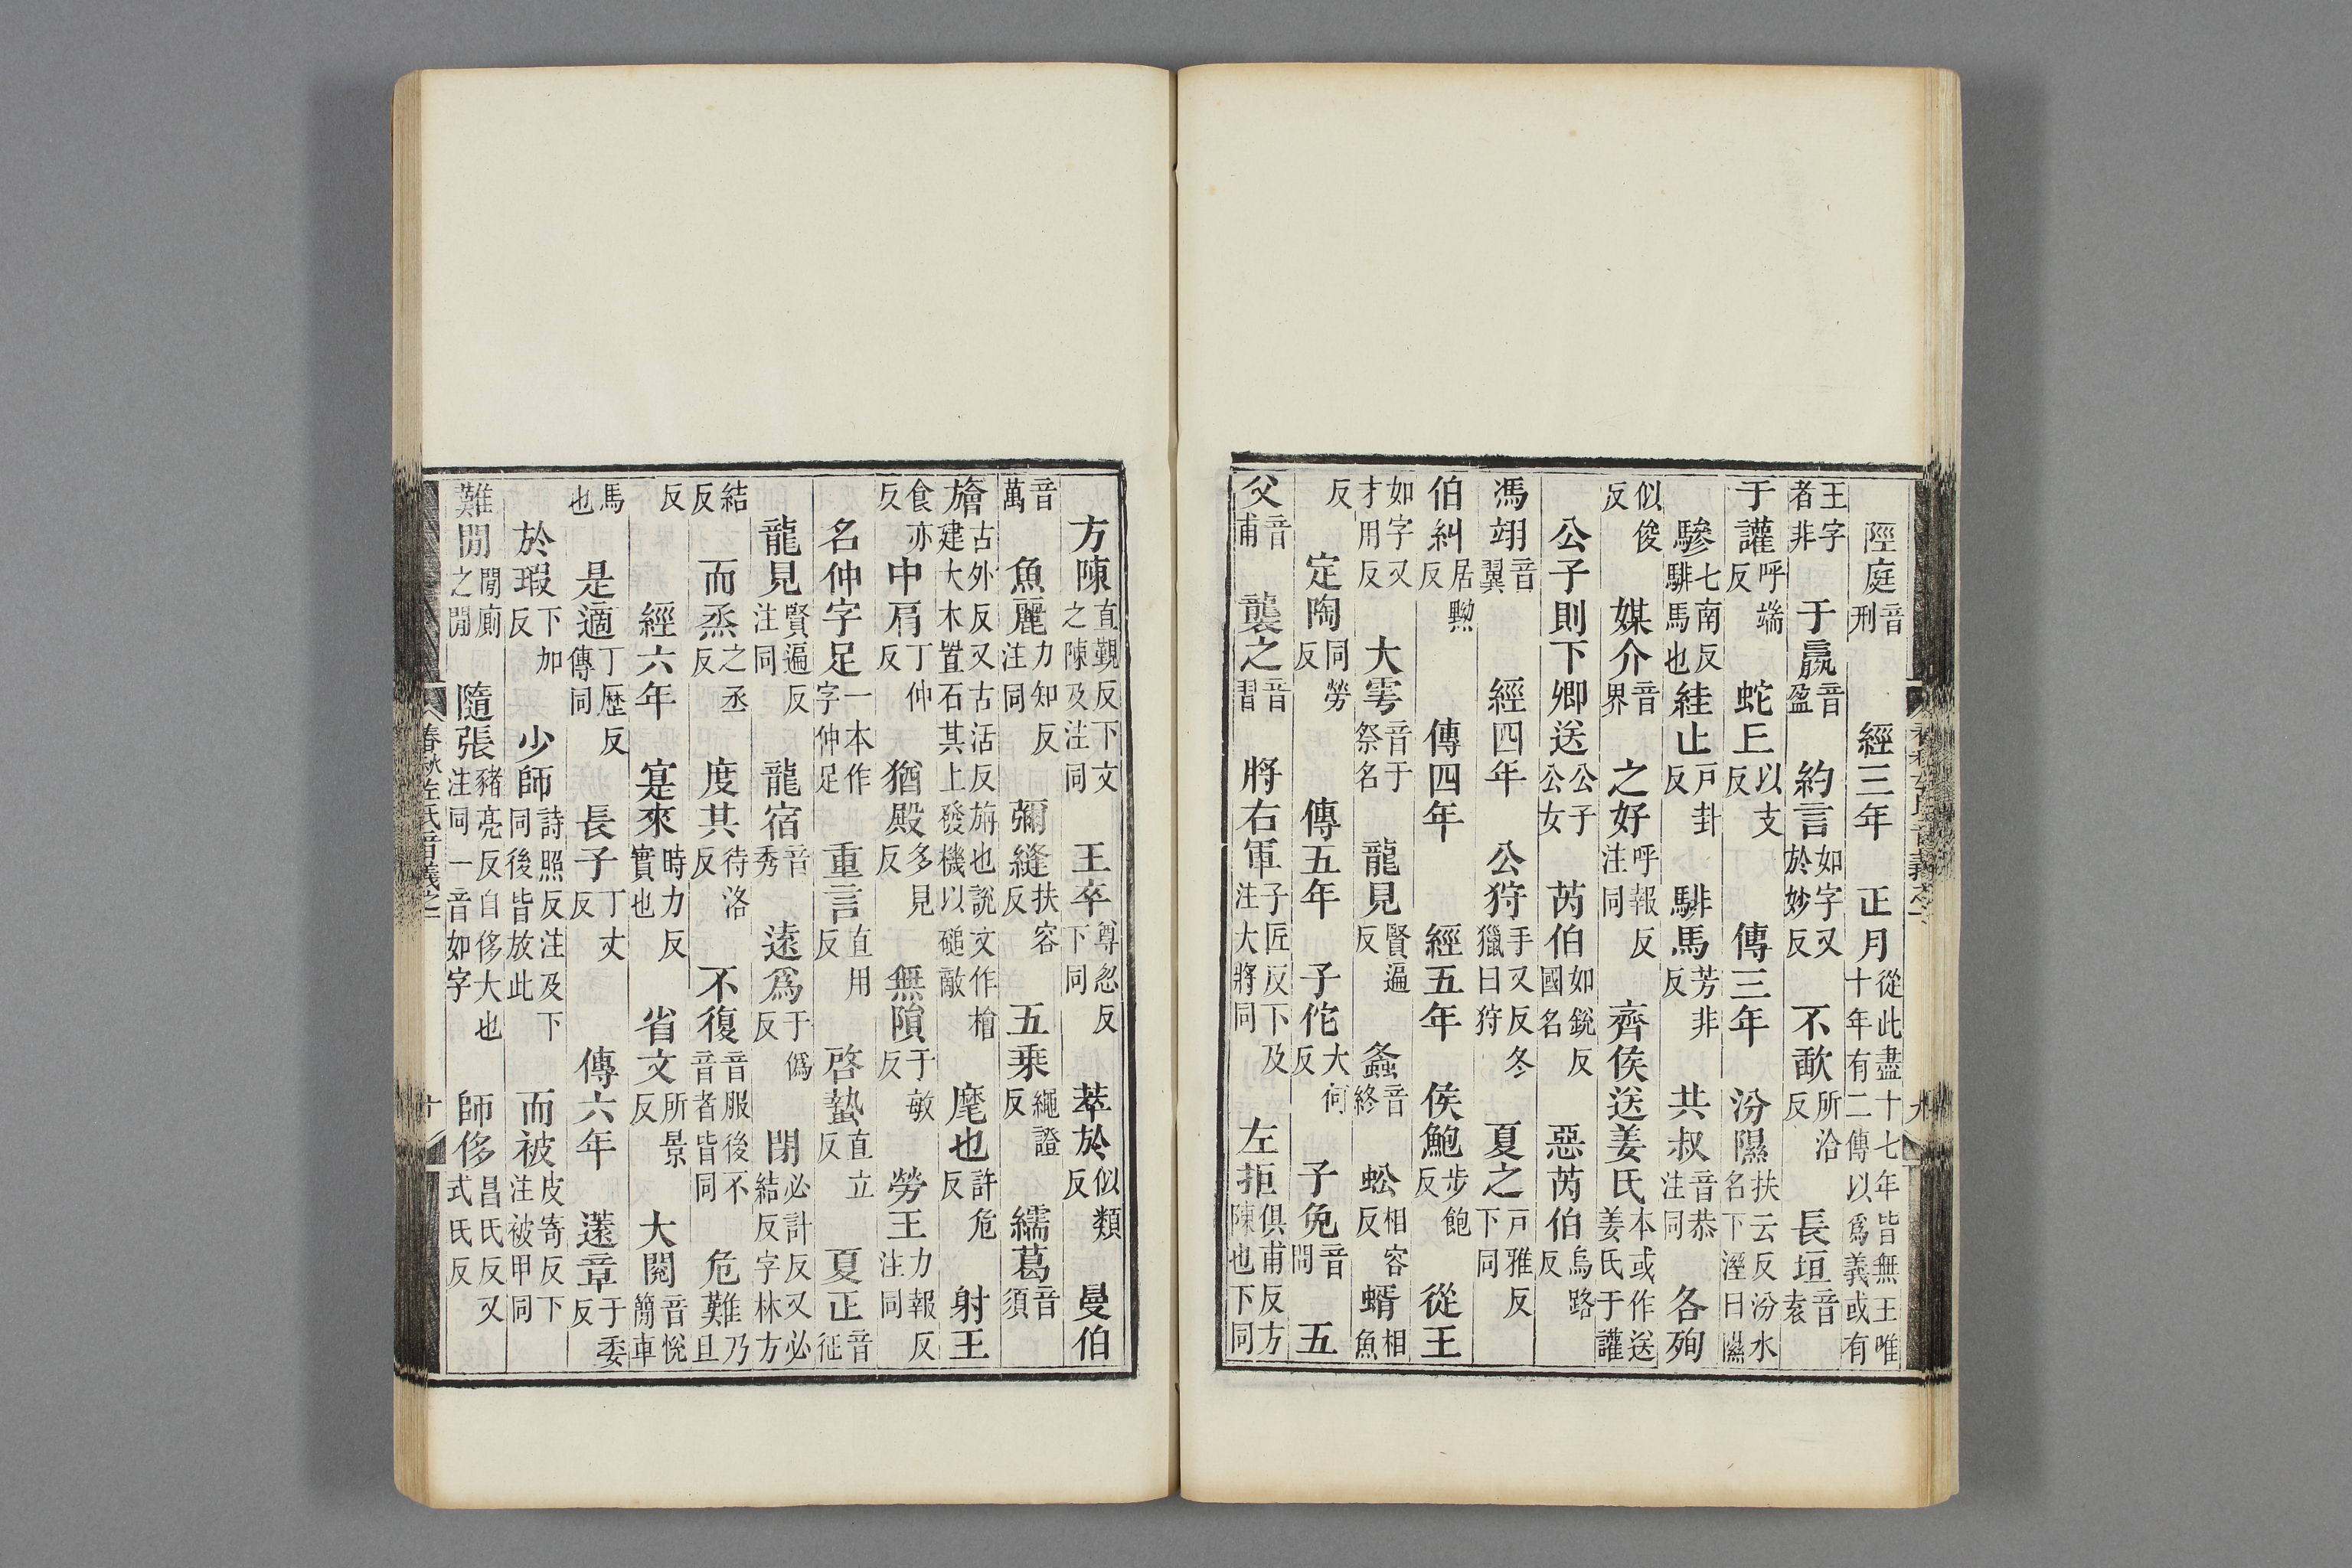 陘庭音刑　經三年　正月從此盡十七年皆無王唯十年有二傳以爲義或有
王字者非　于嬴音盈　約言如字又於妙反　不歃所洽反　長垣音袁
于讙呼端反　蛇丘以支反　傳三年　汾隰扶云反汾水名下溼曰隰
驂七南反騑馬也　絓止戸卦反　騑馬芳非反　共叔音恭注同　各殉
似俊反　媒介音界　之好呼報反注同　齊侯送姜氏本或作送姜氏于讙
公子則下卿送公子公女　芮伯如銳反國名　惡芮伯烏路反
馮翊音翼　經四年　公狩手又反冬獵曰狩　夏之戸雅反下同
伯糾居黝反　傳四年　經五年　侯鮑步飽反　從王
如字又才用反　大雩音于祭名　龍見賢遍反　螽音終　蚣相容反　蝑相魚
反　定陶同勞反　傳五年　子佗大何反　子免音問　五
父音甫　襲之音習　將右軍子匠反下及注大將同　左拒俱甫反方陳也下同
方陳直覲反下文之陳及注同　王卒尊忽反下同　萃於似類反　曼伯
音萬　魚麗力知反注同　彌縫扶容反　五乘繩證反　繻葛音須
旝古外反又古活反旃也說文作檜建大木置石其上發機以磓敵　麾也許危反　射王
食亦反　中肩丁仲反　猶殿多見反　無隕于敏反　勞王力報反注同
名仲字足一本作字仲足　重言直用反　啓蟄直立反　夏正音征
龍見賢遍反注同　龍宿音秀　遠爲于僞反　閉必計反又必結反字林方
結反　而烝之丞反　度其待洛反　不復音服後不音者皆同　危難乃旦
反　經六年　寔來時力反實也　省文所景反　大閱音悅簡車
馬也　是適丁歷反傳同　長子丁丈反　傳六年　薳章于委反
於瑕下加反　少師詩照反注及下同後皆放此　而被皮寄反下注被甲同
難閒閒廁之閒　隨張豬亮反自侈大也注同一音如字　師侈昌氏反又式氏反
春秋左氏音義之一　十